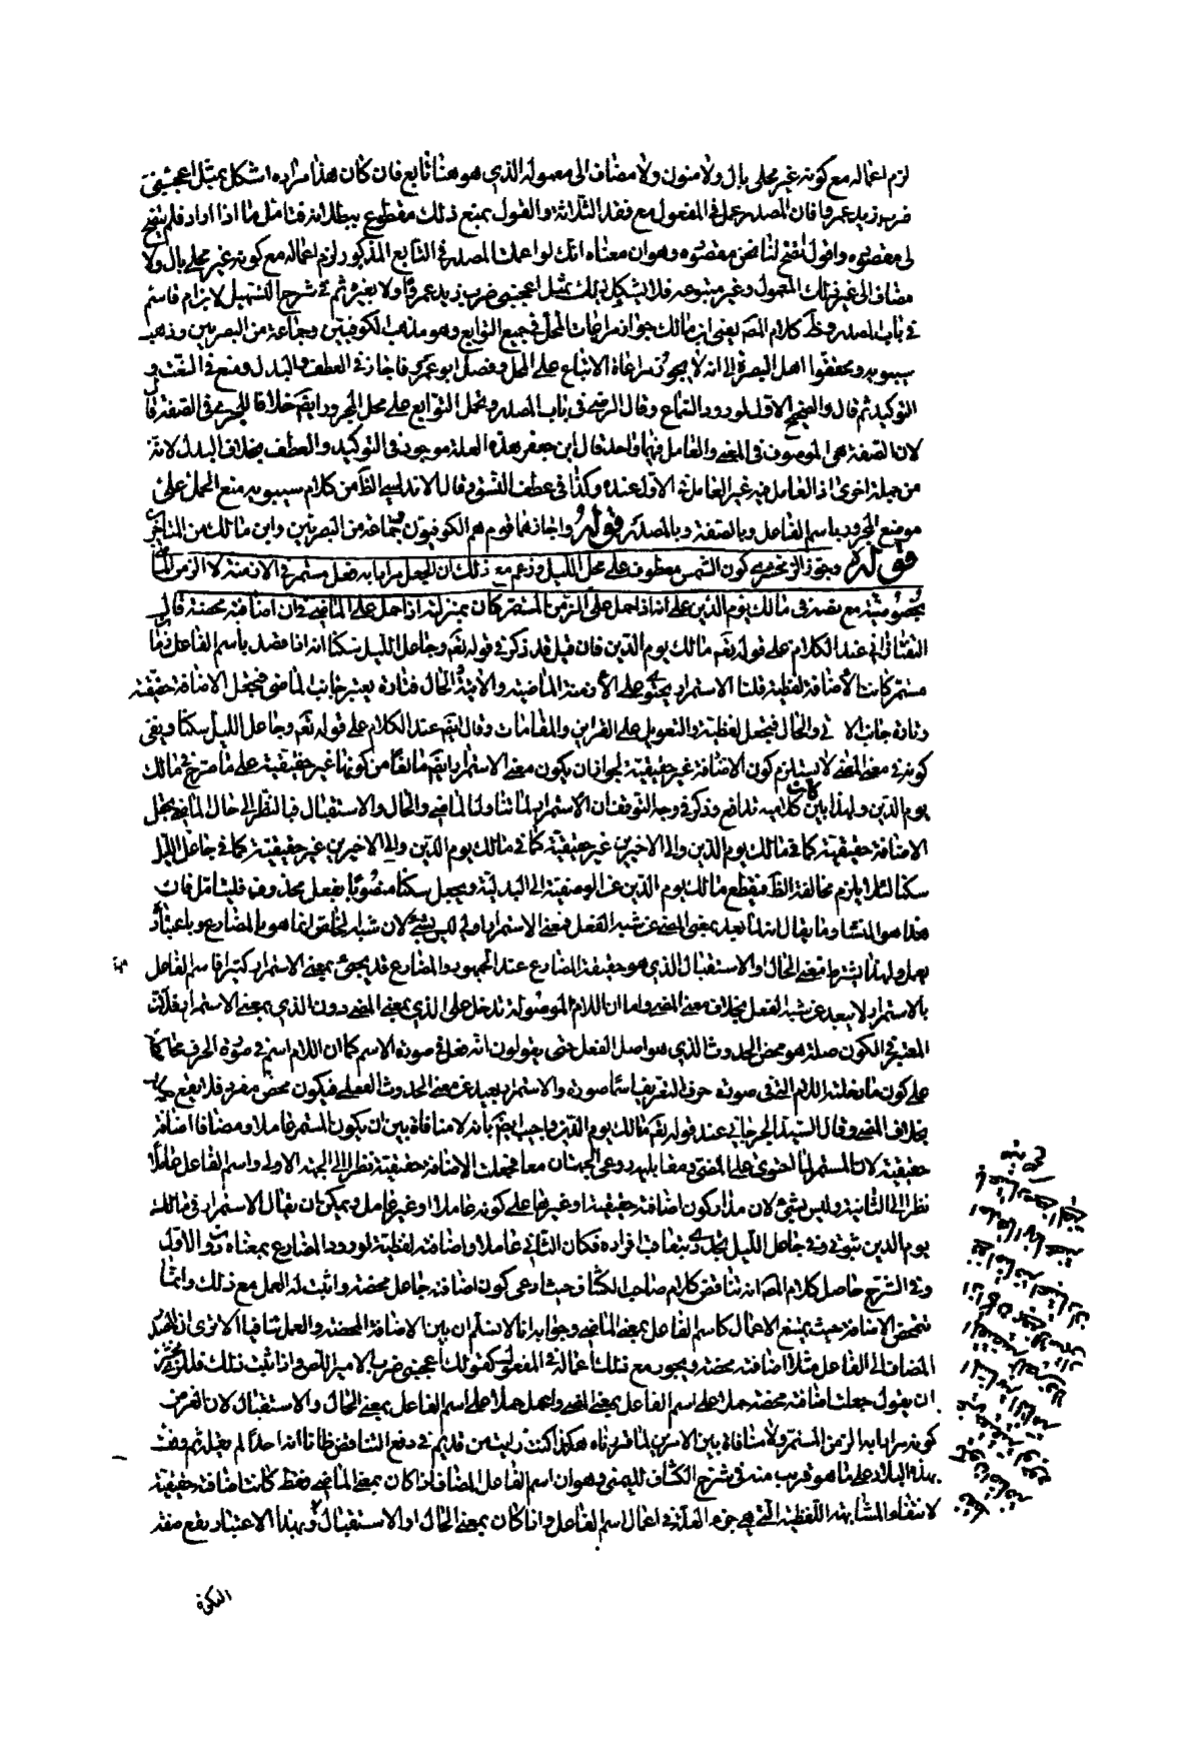 لزم اعماله مع كونه غير محلى بال ولا منون ولا مضاف الى معموله الذي هو هنا تابع فان كان هذا مراده اشكل بمثل اعجبني
ضرب زيد عمرا فان المصدر عمل في المفعول مع فقد الثلاثة والقول بمنع ذلك مقطوع ببطلانه فتامل ما اذا اراد فلم يتضح
لى مقصوده واقول تفتح لنا نحن مقصوده وهو ان معناه انك لو اعملت المصدر في التابع المذكور لزم اعماله مع كونه غير محلى بال ولا
مضاف الى غير ذلك المعمول وغير متبوعه فلا يشكل ذلك بمثل اعجبني ضرب زيد عمرا ولا بغيره ثم في شرح التسهيل لابن ام قاسم
في باب المصدر وظ كلام المص يعني ابن مالك جواز مراعات المحل في جميع التوابع وهو مذهب الكوفيين وجماعة من البصريين وذهب
سيبويه ومحققوا اهل البصرة الى انه لا يجوز مراعاة الاتباع على المحل وفصل ابو عمرو فاجاز في العطف والبدل ومنع في النعت و
التوكيد ثم قال والصحيح الاول لورود السماع وقال الرضي في باب المصدر وتحمل التوابع على محل المجرور ايضا خلافا للجرمي في الصفة قال
لان الصفة هي الموصوف في المعنى والعامل فيهما واحد قال ابن جعفر هذه العلة موجودة في التوكيد والعطف بخلاف البدل لانه
من جملة اخرى اذ العامل فيه غير العامل في الاول عنده وكذا في عطف النسق وقال الاندلسي الظ من كلام سيبويه منع الحمل على
موضع المجرور باسم الفاعل وبالصفة وبالمصدر قوله واجازهما قوم هم الكوفيون وجماعة من البصريين وابن مالك من المتاخرين
قوله وجوز الزمخشري كون الشمس معطوف على محل الليل وزعم مع ذلك ان الجعل مراد به فعل مستمر في الازمنة لا الزمن الماضي
بخصوصيته مع نصه في مالك يوم الدين على انه اذا حمل على الزمن المستمر كان بمنزلته اذا حمل على الماضي في ان اضافته محضة قال
التفتازاني عند الكلام على قوله تعالى مالك يوم الدين فان قيل قد ذكر في قوله تعالى وجاعل الليل سكنا انه اذا قصد باسم الفاعل زمان
مستمر كانت الاضافة لفظية قلنا الاستمرار يحتوي على الازمنة الماضية والاتية والحال فتارة يعتبر جانب الماضي فتجعل الاضافة حقيقية
وتارة جانب الاتي والحال فتجعل لفظية والتعويل على القراين والمقامات وقال ايضا عند الكلام على قوله تعالى وجاعل الليل سكنا
كونه في معنى المضي لا يستلزم كون الاضافة غير حقيقية لجواز ان يكون معنى الاستمرار ايضا مانعا من كونها غير حقيقية على ما صرح في مالك
يوم الدين ولهذا كان بين كلاميه تدافع وذكر في وجه التوفيق ان الاستمرار لما تناول الماضي والحال والاستقبال فبالنظر الى حال الماضي يجعل
الاضافة حقيقية كما في مالك يوم الدين والى الاخيرين غير حقيقية كما في مالك يوم الدين والى الاخيرين غير حقيقية كما في جاعل الليل
سكنا لئلا يلزم مخالفة الظ فيقطع مالك يوم الدين عن الوصفية الى البدلية ويجعل سكنا منصوبا بفعل محذوف فليتامل فان
هذا هو المنشا وما يقال انه لما بعد بمعنى المضي عن شبه الفعل فمعنى الاستمرار اولى ليس بشيء لان شبهه الخاص انما هو بالمضارع وباعتباره
يعمل ولهذا يشترط معنى الحال او الاستقبال الذي هو حقيقة المضارع عند الجمهور والمضارع قد يجيء بمعنى الاستمرار كثيرا فاسم الفاعل
بالاستمرار لا يبعد عن شبه الفعل بخلاف معنى المضي واما ان اللام الموصولة تدخل على الذي بمعنى المضي دون الذي بمعنى الاستمرار فلان
المعتبر في الكون صلة هو محض الحدوث الذي هو اصل الفعل حتى يقولون انه فعل في صورة الاسم كما ان اللام اسم في صورة الحرف محافظة
على كون ما دخلته اللام التي في صورة حرف التعريف اسما صورة والاستمرار بعيد عن معنى الحدوث الفعلي فيكون محض مفرد فلا يقع صلة
بخلاف المضي وقال السيد الجرجاني عند قوله تعالى مالك يوم الدين واجيب ايضا بانه لا منافاة بين ان يكون المستمر عاملا ومضافا اضافة
حقيقية لان المستمر لما احتوى على المضي ومقابليه روعي الجهتان معا فجعلت الاضافة حقيقية نظرا الى الجهة الاولى واسم الفاعل عاملا
نظرا الى الثانية وليس بشيء لان مدار كون اضافته حقيقية او غيرها على كونه عاملا او غير عامل ويمكن ان يقال الاستمرار في مالك
يوم الدين ثبوتي وفي جاعل الليل تجددي بتعاقب افراده فكان الثاني عاملا واضافته لفظية لورود المضارع بمعناه دون الاول
وفي الشرح حاصل كلام المص انه تناقض كلام صاحب الكشاف حيث ادعى كون اضافة جاعل محضة واثبت له العمل مع ذلك وانما
تتمحض الاضافة حيث يمتنع الاعمال كاسم الفاعل بمعنى الماضي وجوابه انا لا نسلم ان بين الاضافة المحضة والعمل تنافيا الا ترى ان المصدر
المضاف الى الفاعل مثلا اضافته محضة ويجوز مع ذلك اعماله في المفعول كقولك اعجبني ضرب الامير اللص واذا ثبت ذلك فللزمخشري
ان يقول جعلت اضافته محضة حملا على اسم الفاعل بمعنى المضي واعمل حملا على اسم الفاعل بمعنى الحال والاستقبال لان الفرض
كونه مرادا به الزمن المستمر ولا منافاة بين الامرين لما قررناه هكذا كنت رايت من قديم في دفع التناقض ظانا ان احدا لم يقله ثم وقفت
بهذه البلاد على ما هو قريب منه في شرح الكشاف لليمني وهو ان اسم الفاعل المضاف اذا كان بمعنى الماضي فقط كانت اضافته حقيقية
لانتفاء المشابهة اللفظية التي هي جزء العلة في اعمال اسم الفاعل واذا كان بمعنى الحال او الاستقبال وبهذا الاعتبار يقع صفة
النكرة